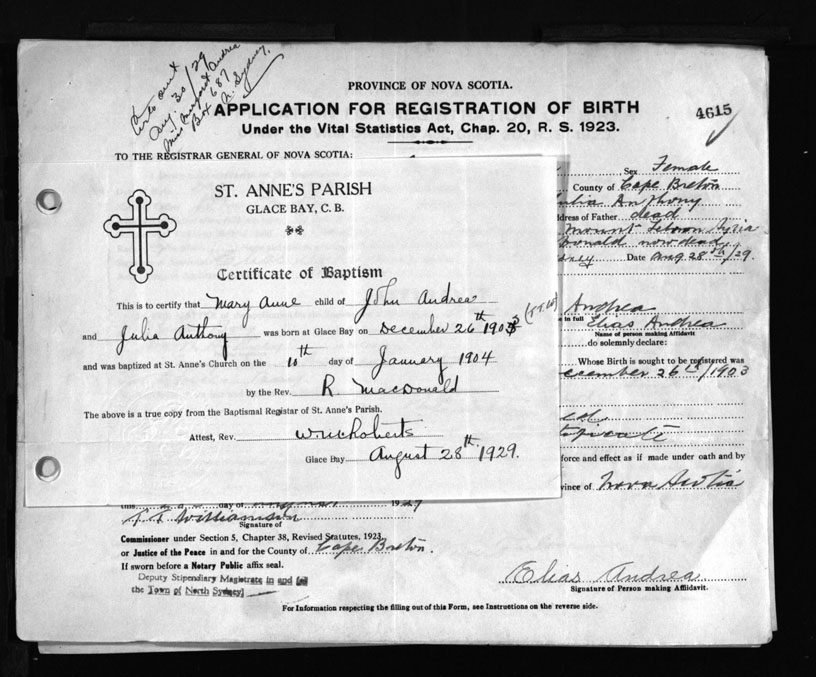 Wrote out
Aug. 30/29
Miss Margaret Andrea
Box 687
N. Sydney
PROVINCE OF NOVA SCOTIA.
APPLICATION FOR REGISTRATION OF BIRTH
4615
Under the Vital Statistics Act, Chap. 20, R. S. 1923.
TO THE REGISTRAR GENERAL OF NOVA SCOTIA:
Sex Female
County of Cape Breton
Julia Anthony
Address of Father dead
Mount Lebanon Syria
Donald now dead
Date Aug 28th/29.
Andrea
in full Elias Andrea
Name of person making Affidavit
do solemnly declare:
Whose Birth is sought to be registered was
December 26th/1903
force and effect as if made under oath and by
Province of Nova Scotia
ST. ANNE'S PARISH
GLACE BAY, C. B.
Certificate of Baptism
This is to certify that Mary Anne child of John Andrea
and Julia Anthony was born at Glace Bay on December 26th 1903 (T.T.W)
and was baptized at St. Anne's Church on the 10th day of January 1904
by the Rev. R. MacDonald
The above is a true copy from the Baptismal Registar of St. Anne's Parish.
Attest, Rev.
Glace Bay August 28th 1929.
this day of 1929
T. T. Williamson
Signature of
Commissioner under Section 5, Chapter 38, Revised Statutes, 1923,
or Justice of the Peace in and for the County of Cape Breton.
If sworn before a Notary Public affix seal.
Deputy Stipendiary Magistrate in and for
the Town of North Sydney
Elias Andrea
Signature of Person making Affidavit.
For Information respecting the filling out of this Form, see Instructions on the reverse side.